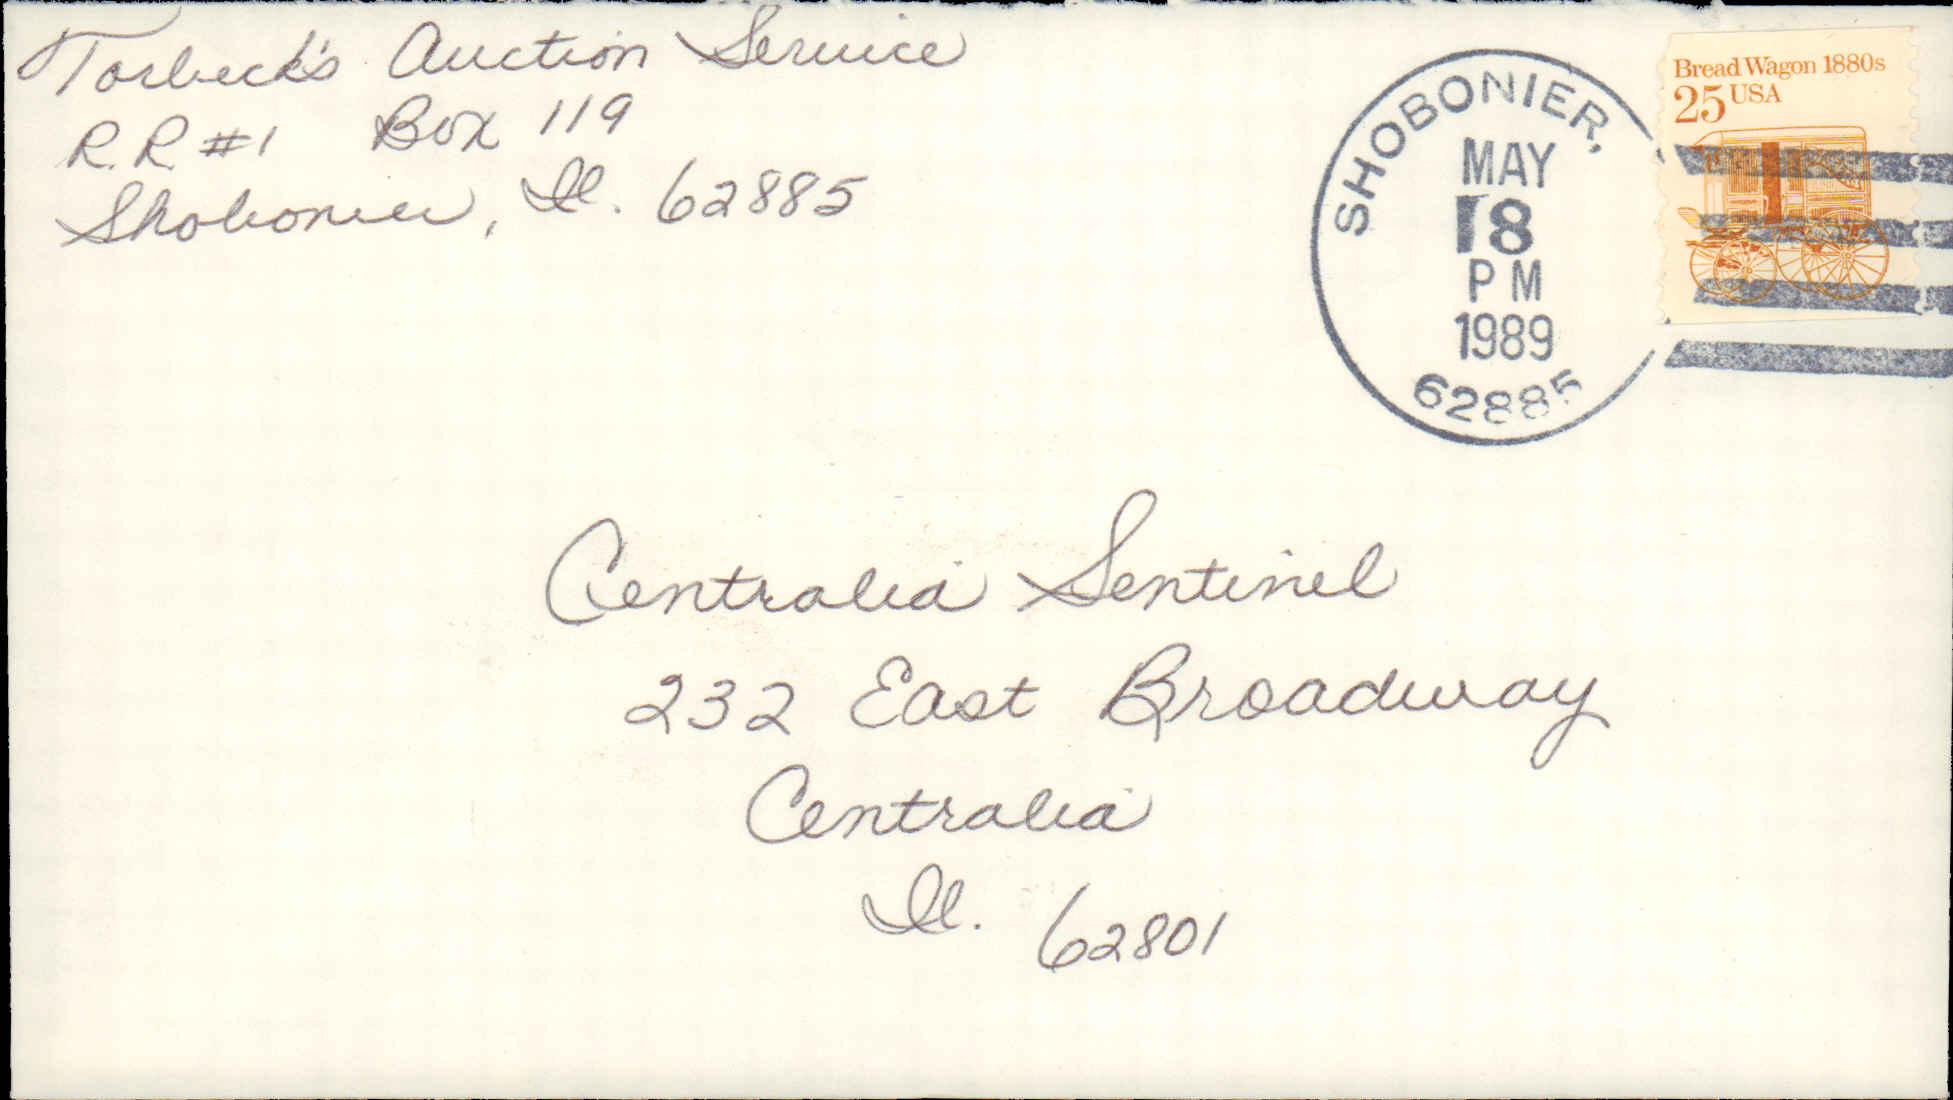 Torbeck's Auction Service
R.R #1 Box 119
Shobonier, Il. 62885
SHOBONIER,
MAY
18
PM
1989
62885
Bread Wagon 1880s
25 USA
Centralia Sentinel
232 East Broadway
Centralia
Il. 62801